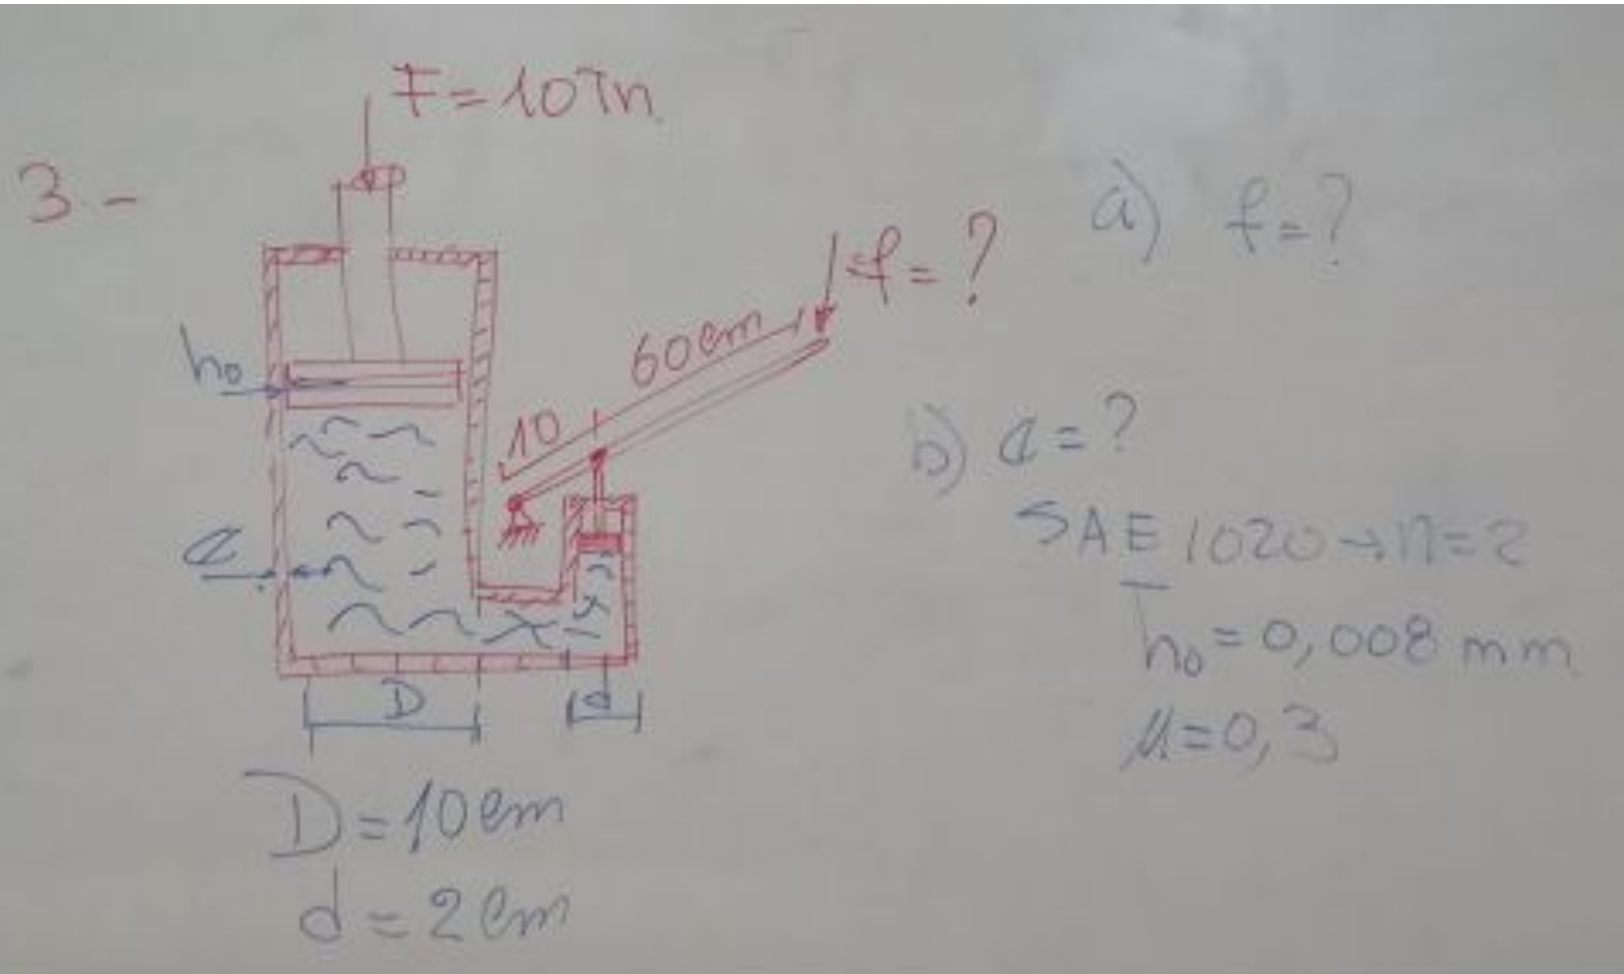 3-
F=10Tn
f=?
60cm
10
h₀
e
D
d
D=10cm
d=2cm
a) f=?
b) e=?
SAE 1020→n=2
h₀=0,008 mm
μ=0,3